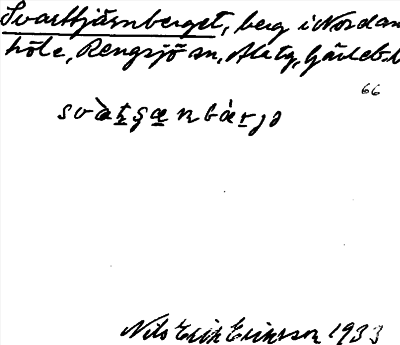 Svarttjärnberget, berg i Nordan-
höle, Rengsjö sn, Ala tg, Gävleb. l
66
Nils Erik Eriksson 1933